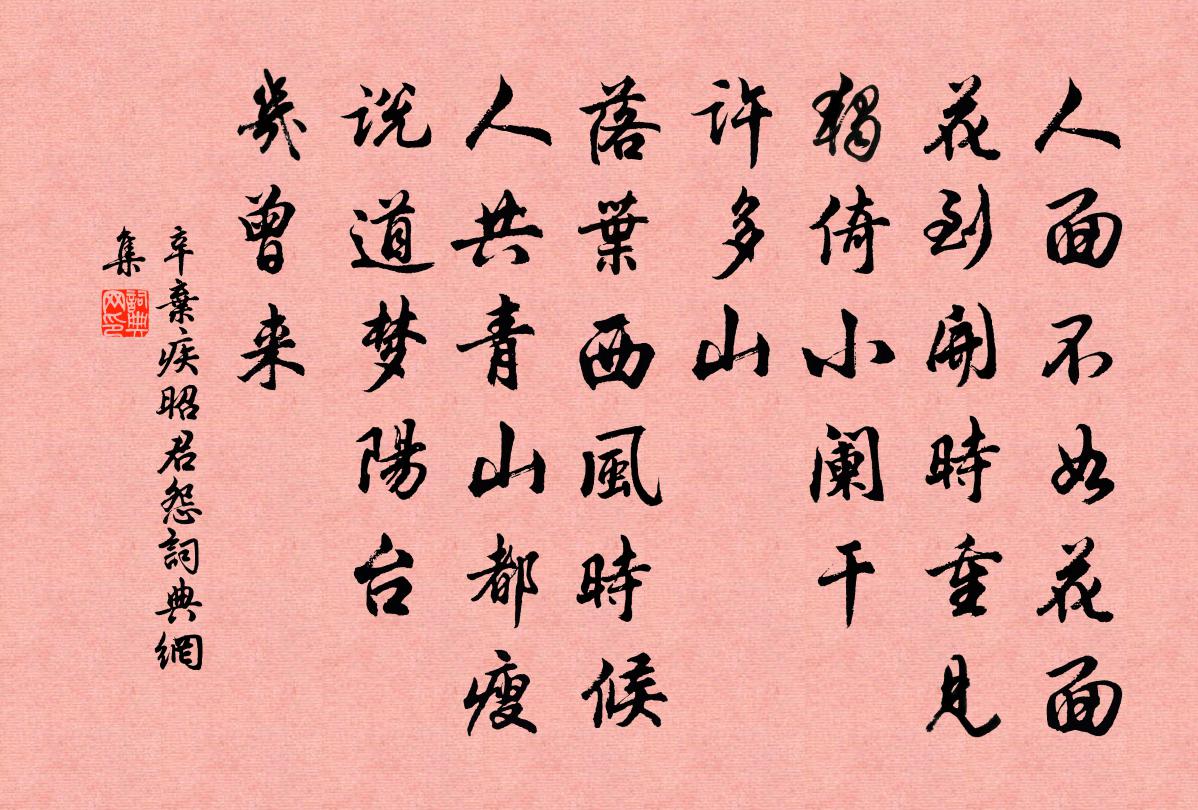 人面不如花面
花到開時重見
獨倚小闌干
許多山
落葉西風時候
人共青山都瘦
説道夢陽台
幾曾来
辛棄疾昭君怨詞典網
集
詞典
网印